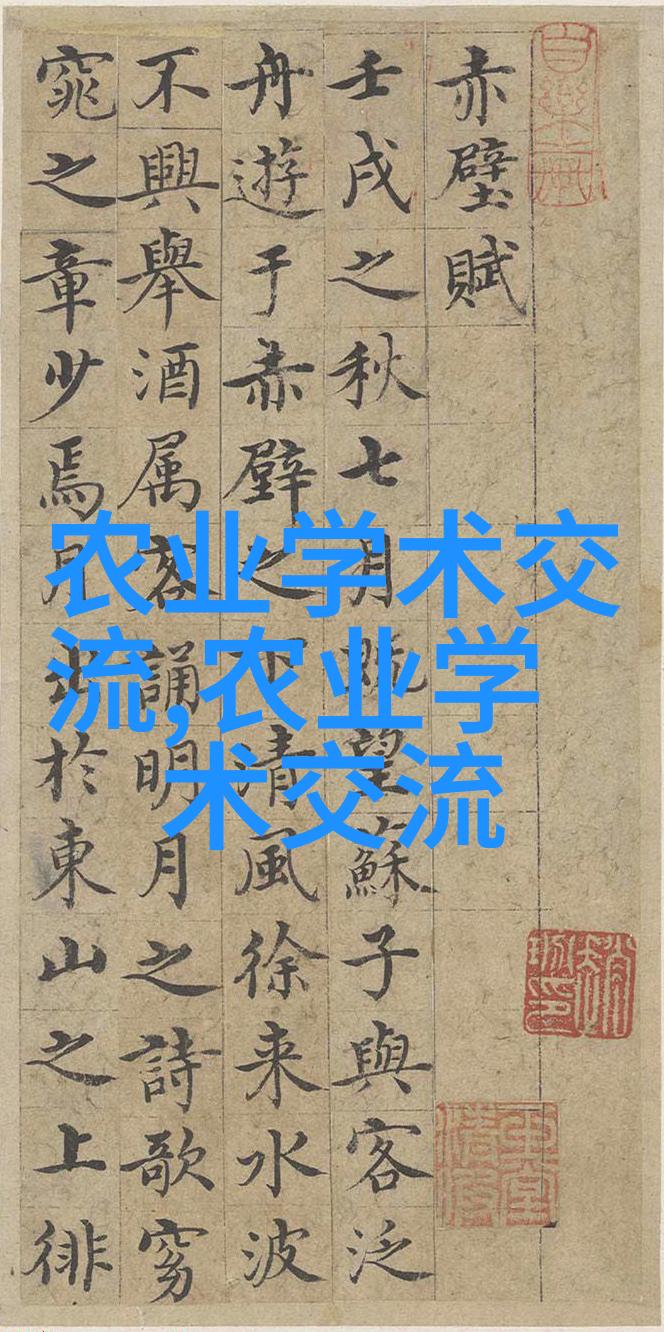 赤壁賦
壬戌之秋七月既望蘇子與客泛
舟遊于赤壁之下清風徐来水波
不興舉酒属客誦明月之詩歌窈
窕之章少焉月出於東山之上徘
农业学术交
流,农业学
术交流